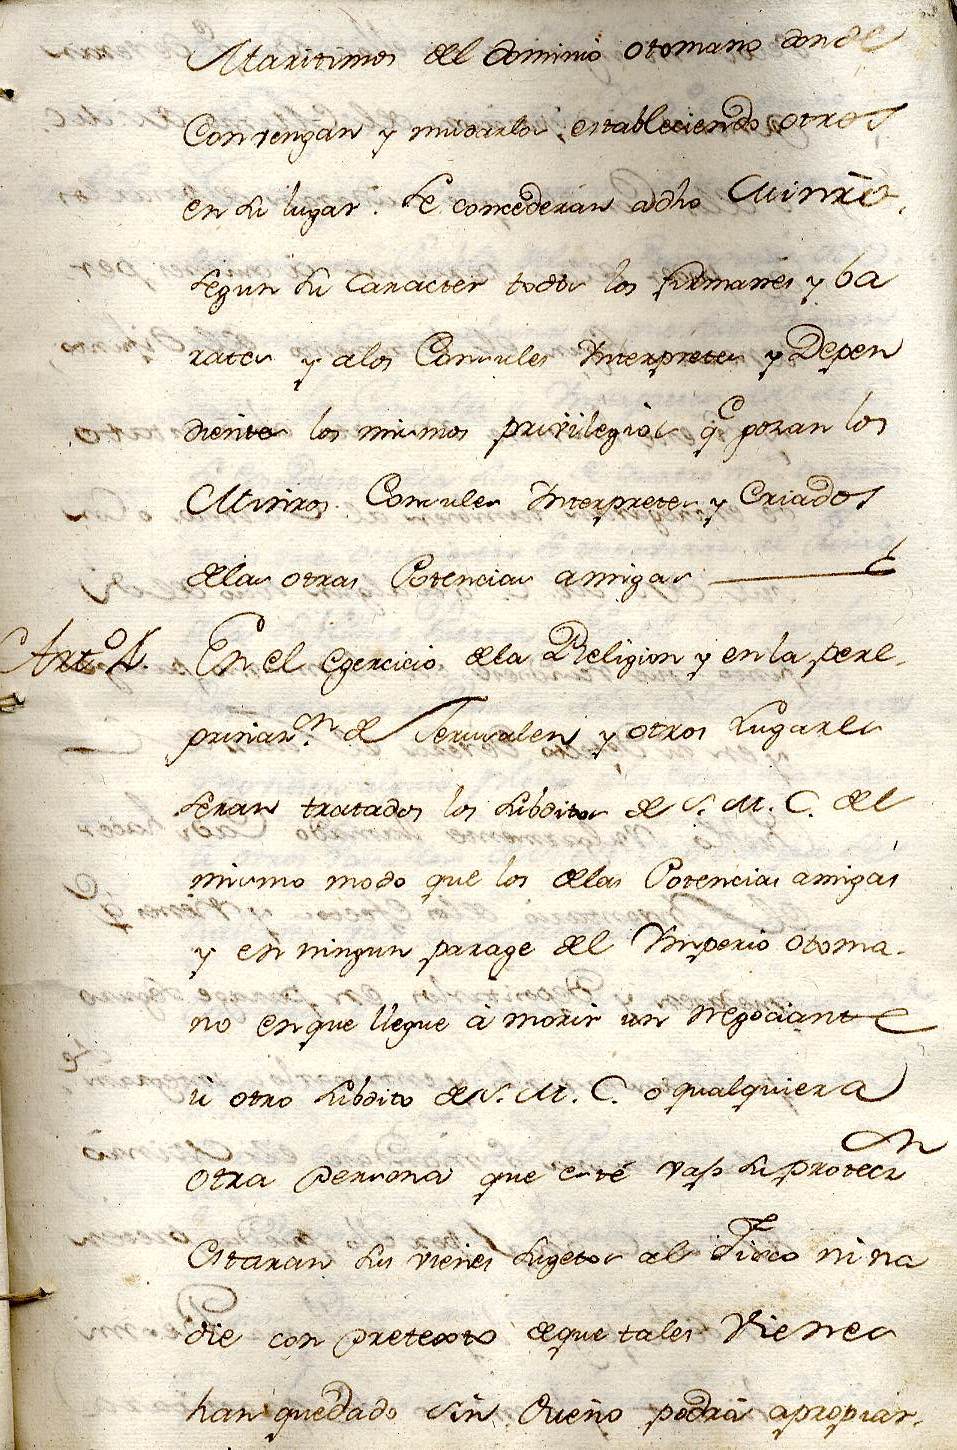 Maritimos del dominio otomano donde
Convengan y mudarlos, estableciendo otros
en su lugar. Se concederan adho Minrô.
segun su Caracter todos los firmanes y ba
rates y alos Consules Interpretes y Depen
dientes los mismos privilegios q.e gozan los
Minros. Consules Interpretes y Criados
delas otras Potencias amigas
Art.o 4. En el egercicio dela Religion y en la pere-
grinaz.on de Jerusalen y otros Lugares
seran tratados los subditos de S. M. C. del
mismo modo que los delas Potencias amigas
y en ningun parage del Imperio otoma-
no en que llegue à morir un negociante
ù otro subdito de S. M. C. ó qualquiera
otra persona que esté vajo su protecn
Estaran sus vienes sugetos al Fisco ni na
die con pretexto deque tales Vienes
han quedado sin Dueño podrà apropiar-